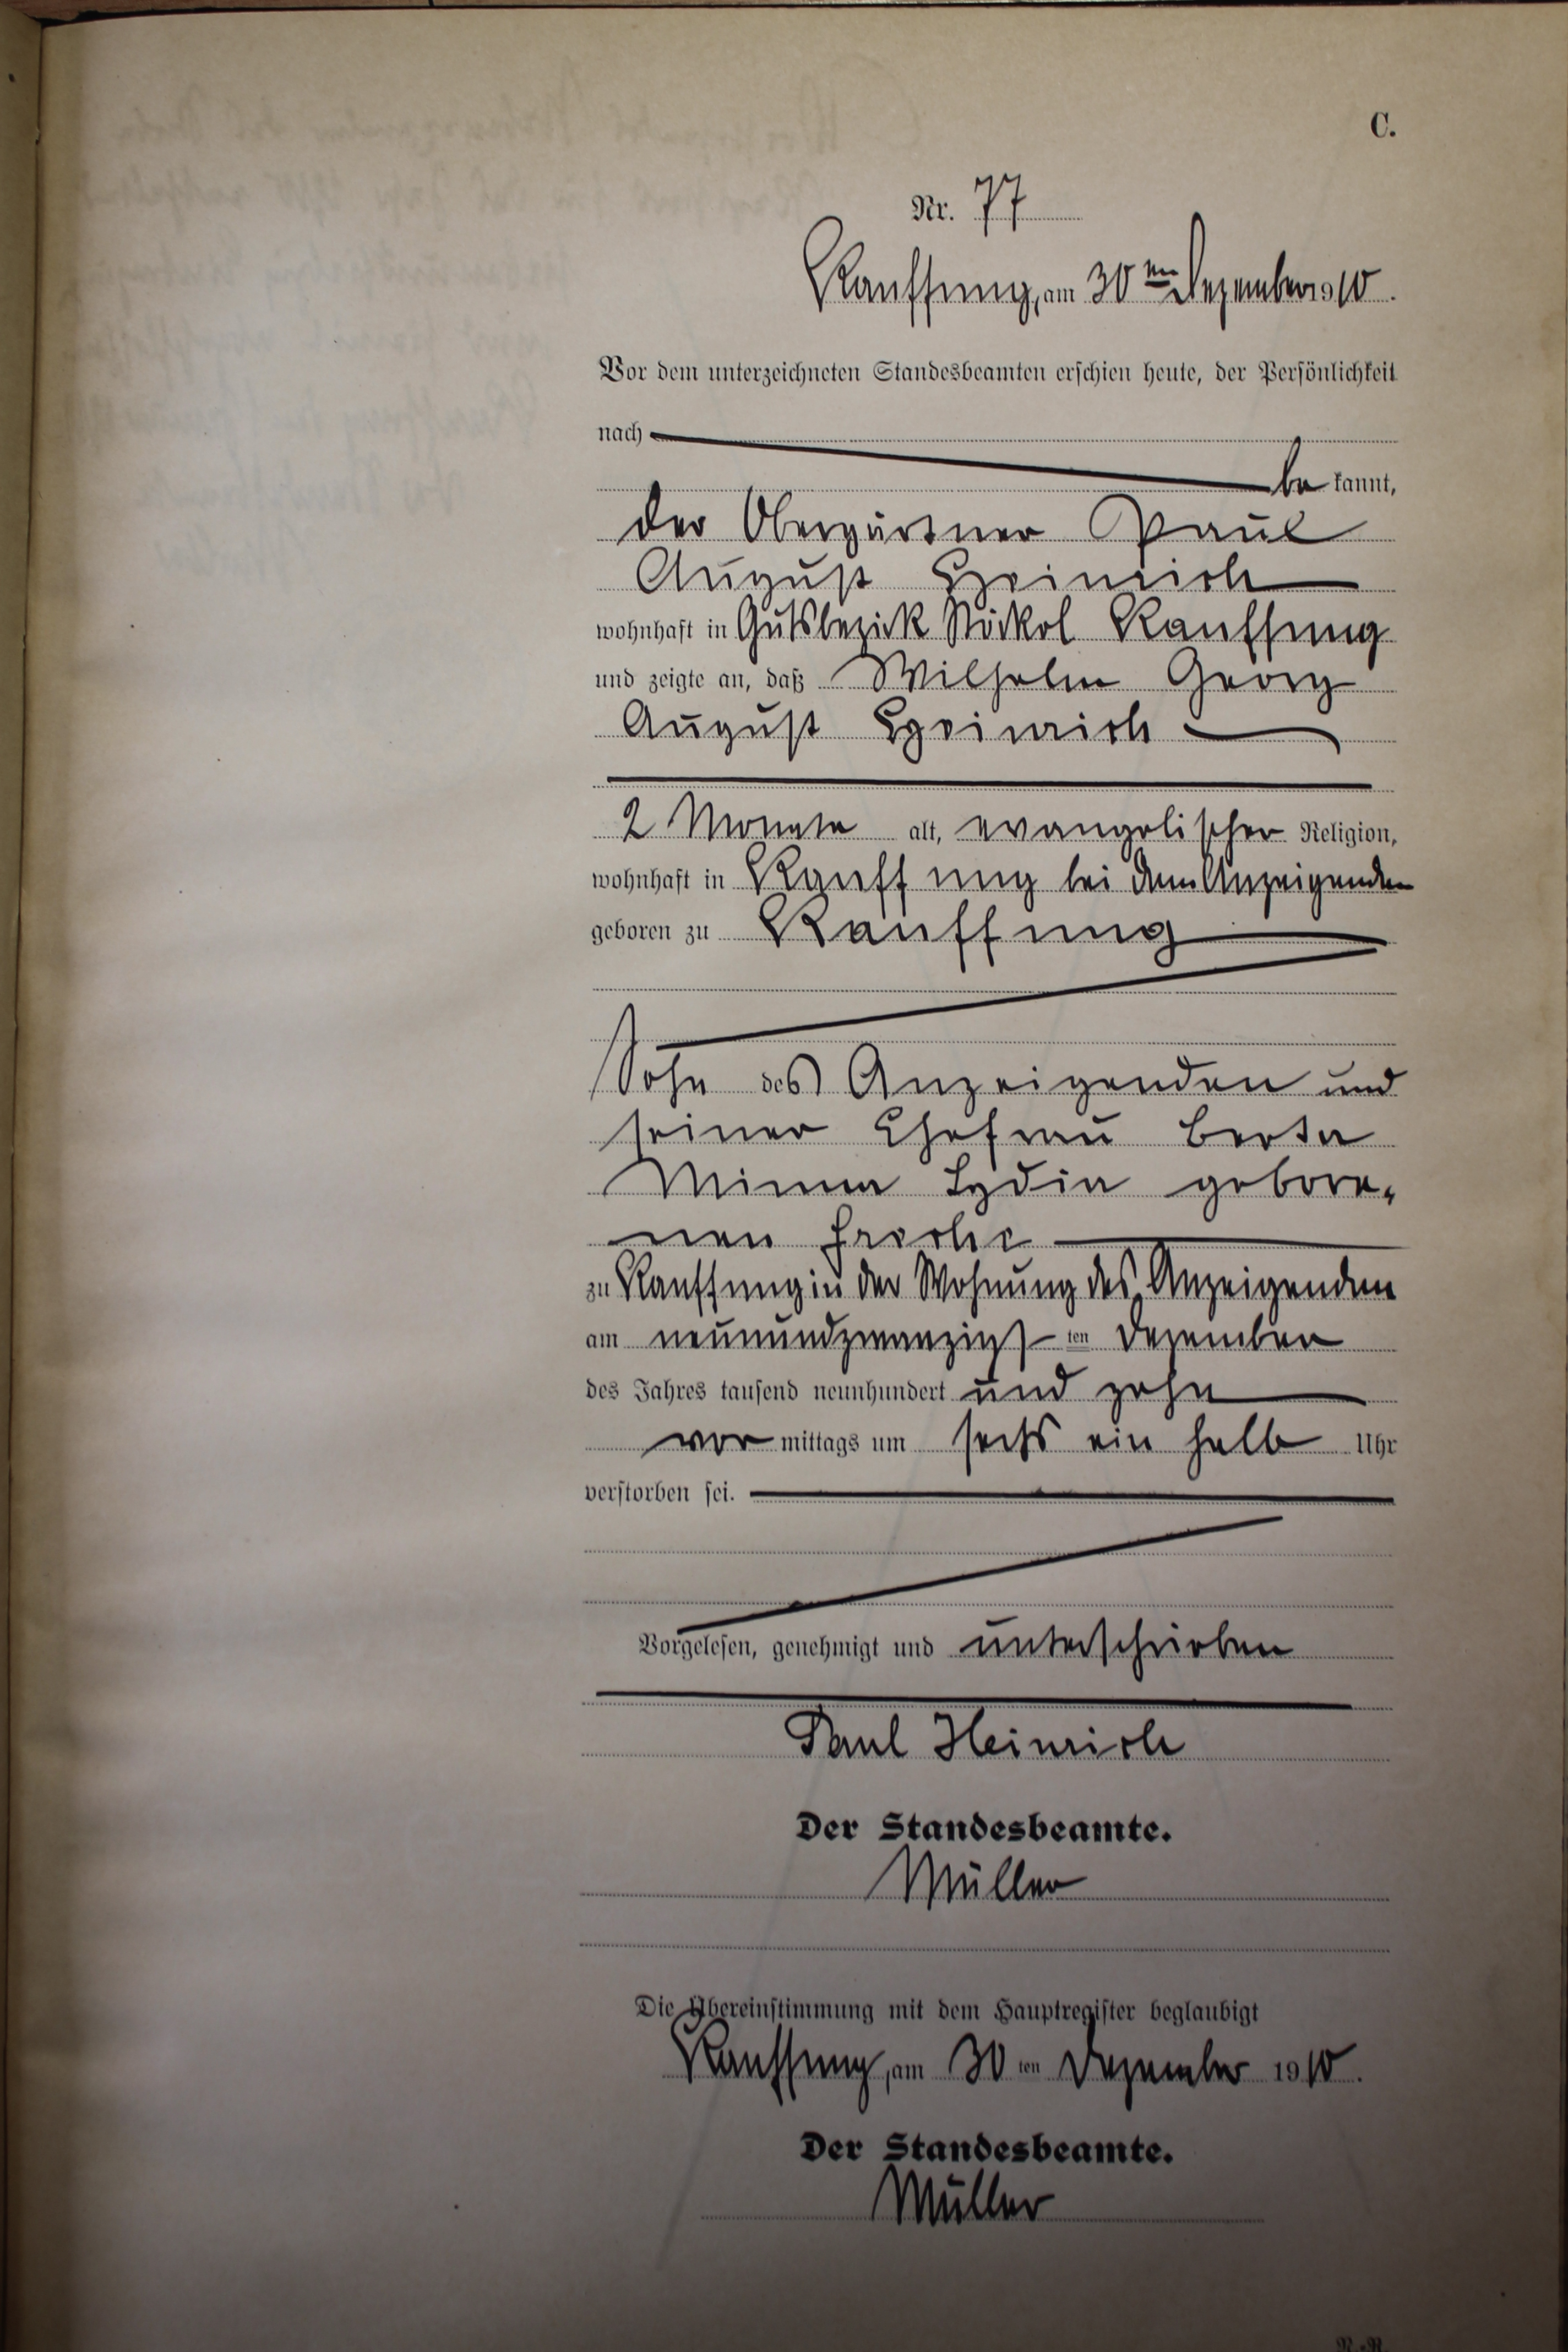 C.
Nr. 77
Kauffung, am 30ten Dezember 1910.
Vor dem unterzeichneten Standesbeamten erschien heute, der Persönlichkeit
nach
be kannt,
der Obergärtner Paul
August Heinrich
wohnhaft in Gutsbezirk Stöckel Kauffung
und zeigte an, daß Wilhelm Georg
August Heinrich
2 Monate alt, evangelischer Religion,
wohnhaft in Kauffung bei dem Anzeigenden
geboren zu Kauffung
Sohn des Anzeigenden und
seiner Ehefrau Berta
Minna Lydia gebore-
nen
zu Kauffung in der Wohnung des Anzeigenden
am neunundzwanzigsten Dezember
des Jahres tausend neunhundert und zehn
vor mittags um sechs ein halb Uhr
verstorben sei.
Vorgelesen, genehmigt und unterschrieben
Paul Heinrich
Der Standesbeamte.
Müller
Die Übereinstimmung mit dem Hauptregister beglaubigt
Kauffung, am 30ten Dezember 1910.
Der Standesbeamte.
Müller